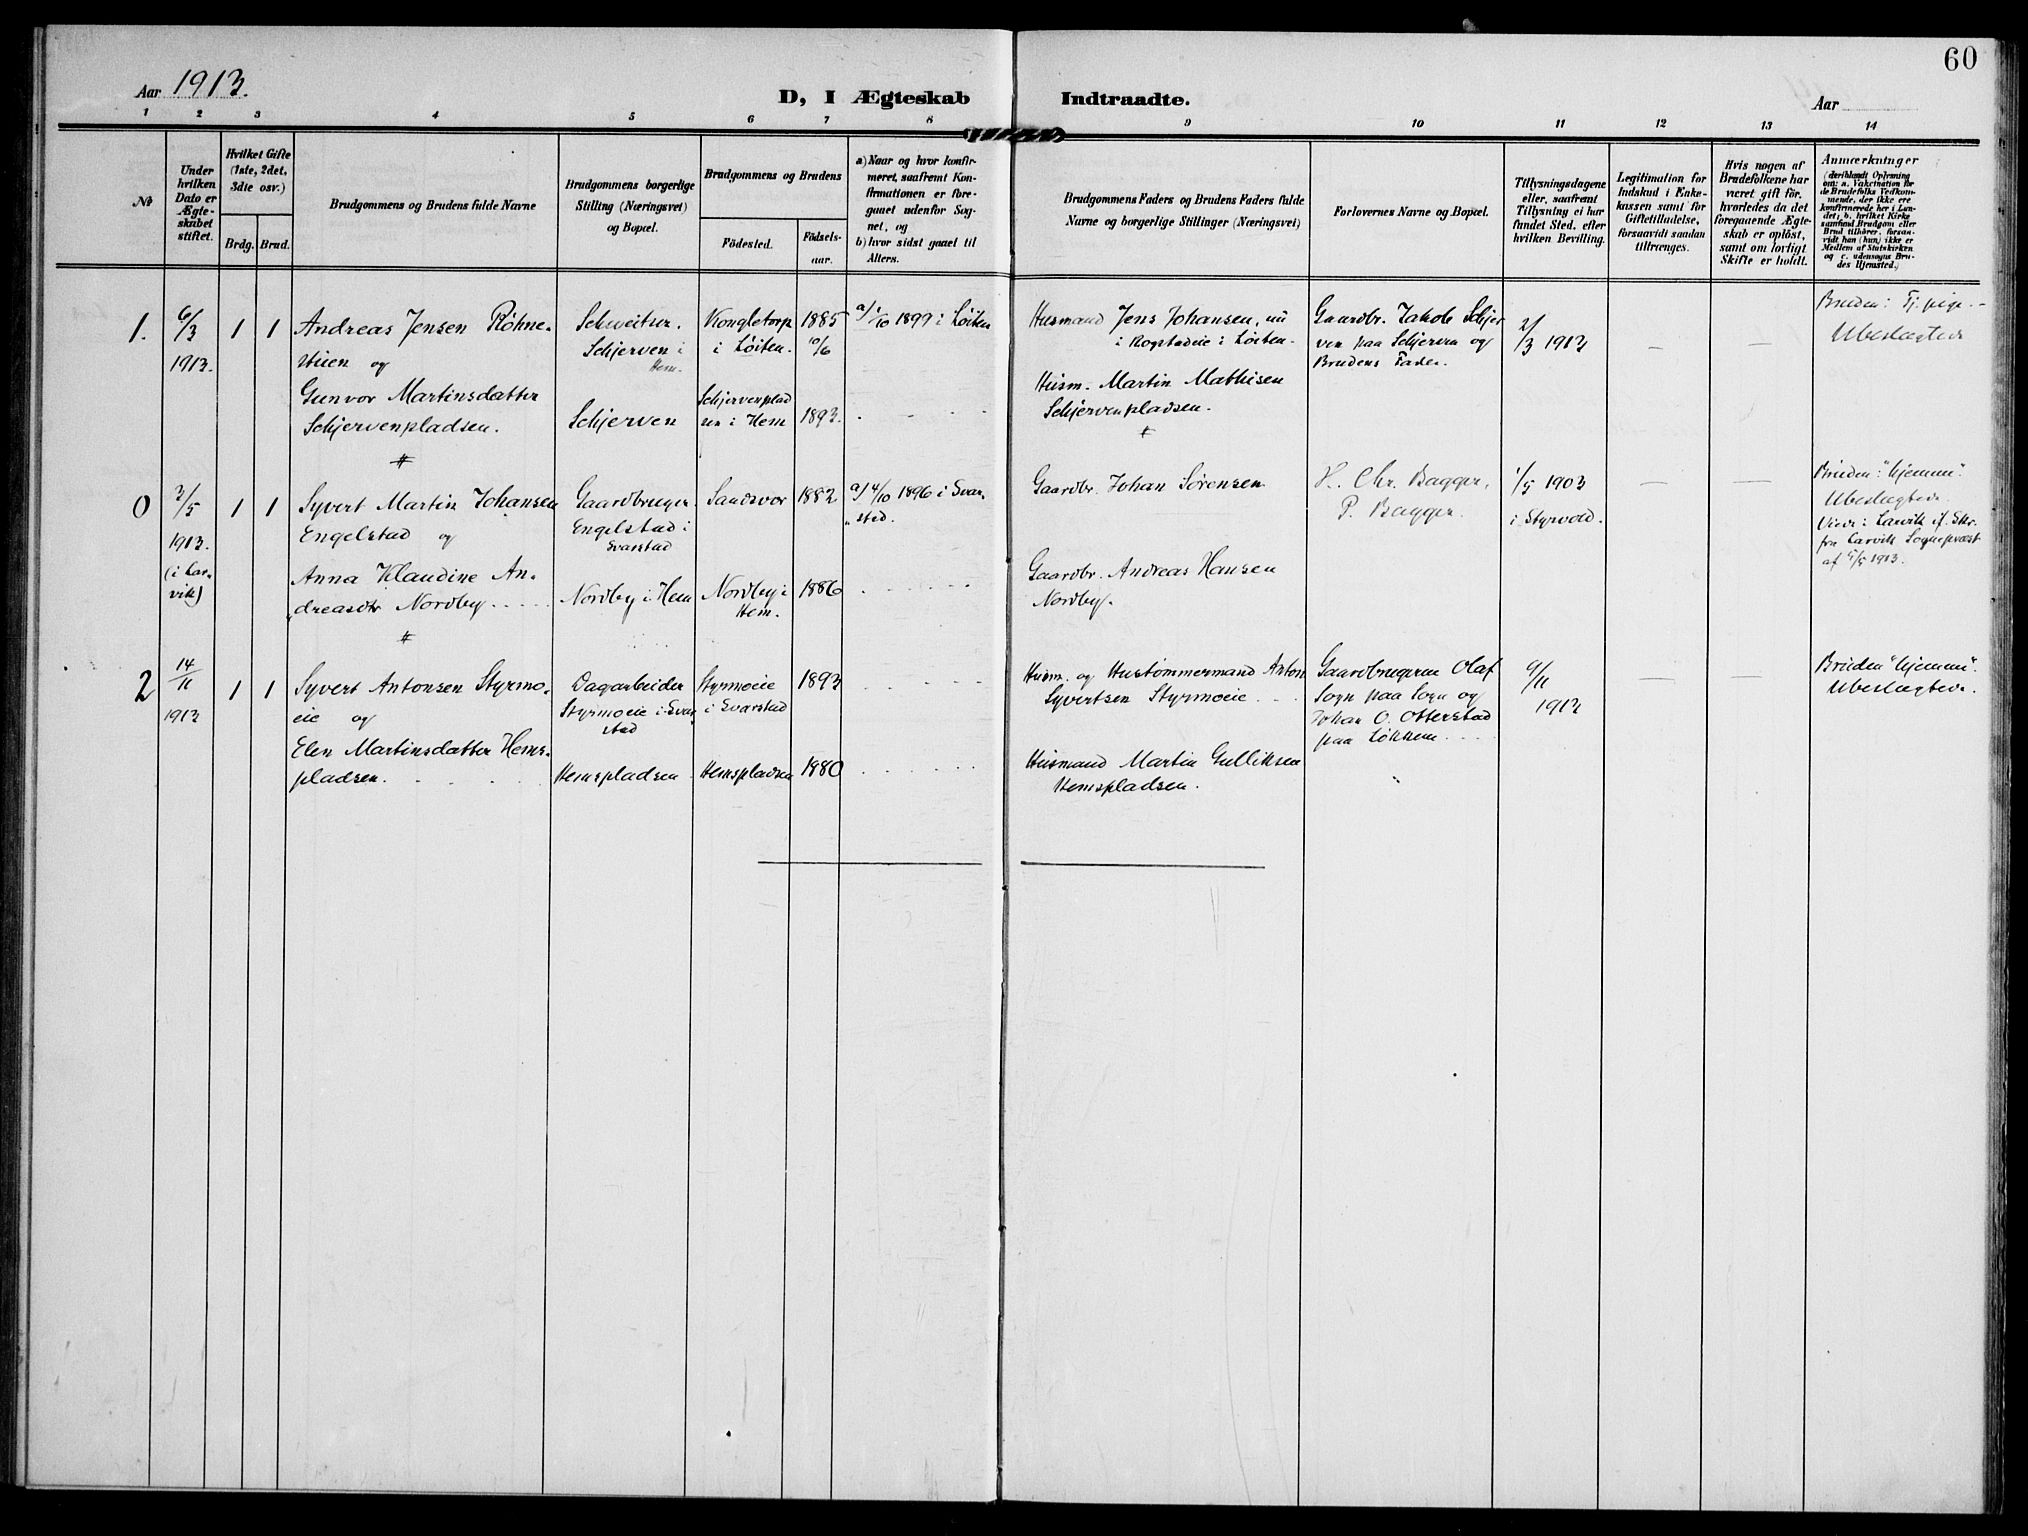 60
Aar 1913.
D, I Ægteskab Indtraadte.
Aar
1 2 3 4 5 6 7 8 9 10 11 12 13 14
No
Under
hvilken
Dato er
Ægte-
skabet
stiftet.
Hvilket Gifte
(1ste, 2det,
3die osv.)
Brdg. Brud.
Brudgommens og Brudens fulde Navne
Brudgommens borgerlige
Stilling (Næringsvei)
og Bopæl.
Brudgommens og Brudens
Födested.
Födsels-
aar.
a) Naar og hvor konfir-
meret, saafremt Kon-
firmationen er fore-
gaaet udenfor Sog-
net, og
b) hvor sidst gaaet til
Alters.
Brudgommens Faders og Brudens Faders fulde
Navne og borgerlige Stillinger (Næringsvei)
Forlovernes Navne og Bopæl.
Tillysningsdagene
eller, saafremt
Tillysning ei har
fundet Sted, efter
hvilken Bevilling.
Legitimation for
Indskud i Enke-
kassen samt for
Giftetilladelse,
forsaavidt saadan
tiltrænges.
Hvis nogen af
Brudefolkene har
været gift för,
hvorledes da det
foregaaende Ægte-
skab er oplöst,
samt om lovligt
Skifte er holdt.
Anmærkninger
(deriblandt Oplysning
om: a. Vakcination for
de Brudefolks Vedkom-
mende, der ikke ere
konfirmerede her i Lan-
det; b. hvilket Kirke-
samfund Brudgom eller
Brud tilhörer, forsaa-
vidt han (hun) ikke er
Medlem af Statskirken
og c. udensogns Bru-
des Hjemsted.)
1.
6/3
1913.
1 1
Andreas Jensen Röhne-
stuen og
Gunvor Martinsdatter
Schjervenpladsen.
#
Schweitser.
Schjerven i
Hem.
Schjerven
Kongletorp
i Löiten.
Schjervenplad
sen i Hem
1885
10/6
1893.
a/ 1/10 1899 i Löiten
Husmand Jens Johansen, nu
i Rogstadeie i Löiten.
Husm. Martin Mathisen
Schjervenpladsen.
#
Gaardbr. Jakob Schjer
ven paa Schjerven og
Brudens Fader.
2/3 1913
Bruden: Tj.pige.
Ubeslægtede
0
3/5
1913.
(i Lar-
vik)
1 1
Syvert Martin Johansen
Engelstad og
Anna Klaudine An-
dreasdtr Nordby
#
Gaardbruger
Engelstad i
Svarstad
Nordby i Hem
Sandsvor
Nordby i
Hem.
1882
1886
a/ 4/10 1896 i Svar-
sted.
Gaardbr. Johan Sørensen
Gaardbr. Andreas Hansen
Nordby.
H. Chr. Bagger,
P. Bagger.
1/5 1903
i Styrvold.
Bruden: "hjemme".
Ubeslægtede.
Viede i Larvik if. Skr.
fra Larvik Sognepræst
af 5/5 1913.
2
14/11
1913
1 1
Syvert Antonsen Styrmo-
eie og
Elen Martinsdatter Hems-
pladsen.
Dagarbeider
Styrmoeie i Svar
stad
Hemspladsen
Styrmoeie
i Svarstad
Hemspladsen
1893
1880
Husm. og Hustömmermand Anton
Syvertsen Styrmoeie
Husmand Martin Gulliksen
Hemspladsen.
Gaardbrugerne Olaf
Sogn paa Sogn og
Johan O. Otterstad
paa Løkken.
9/11
1913
Bruden "hjemme"
Ubeslægtede.